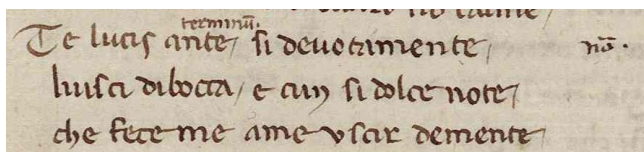 terminũ.
Te lucis ante/ si devotamente/ nõ.
luisci dibocca/ e cun si dolce note/
che fece me ame vscir demente